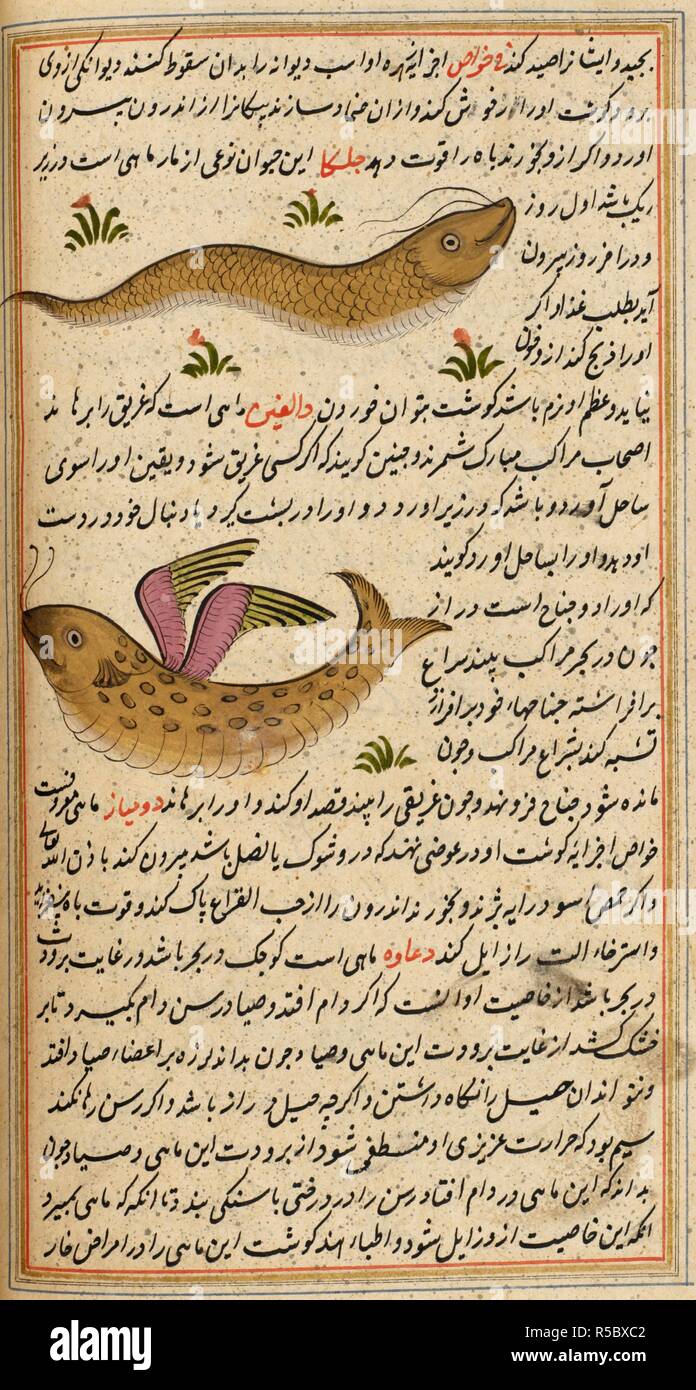 بجهد و ایشانرا صید کند فی خواص اجزایه زهره او اسب دیوانه را بدان سقوط کنند دیوانکی از وی
برود کوشت او را فروش کنند و از آن ضماد سازند پیکانرا از اندرون بیرون
اورد و اکر ازو بخورند باه را قوت دهد جلکا این حیوان نوعی از مار ماهی است در زیر
ریک باشد اول روز
و در اخر روز بیرون
آید بطلب غذا و اکر
او را ذبح کنند ازو خون
نیاید و عظم او نرم باشد کوشت بتوان خوردن دالفین ماهی است که غریق را برهاند
اصحاب مراکب مبارک شمرند و چنین کویند که اکر کسی غریق شود و یقین او را سوی
ساحل آورد و باشد که در زیر او رود و او را در پشت کیرد یا دنبال خود در دست
او دهد و او را بساحل اورد کویند
که او را دو جناح است دراز
جون در بحر مراکب بیند شراع
برافراشته جناحهاء خود برافرازد
تشبه کند بشراع مراکب و جون
مانده شود جناح فرو نهد و جون غریقی را بیند قصد او کند و او را برهاند دوبیاز ماهی معروفست
خواص اجزایه کوشت او در عوضی نهند که درو شوک یا نصل باشد بیرون کند باذن الله تعالی
و اکر حمص اسود را به پزند و بخورند اندرون را از حب القراع پاک کند و قوت باه بیفزاید
و استرخاء الت را زایل کند دعاوه ماهی است کوجک در بحر باشد در غایت برودت
در بحر باشد از خاصیت او انست که اکر در دام افتد و صیاد رسن دام بکیرد تا بر
خشک کشد از غایت برودت این ماهی و صیاد جون بداند لرزه بر اعضاء صیاد افتد
و نتواند ان حبل را نکاه داشتن و اکرچه حبل دراز باشد و اکر رسن رها نکند
بیم بود که حرارت غریزی او منطفی شود از برودت این ماهی و صیاد چون
بداند که این ماهی در دام افتاد رسن را در درختی با سنکی بندد تا انکه که ماهی بمیرد
انکه این خاصیت ازو زایل شود و اطباء هند کوشت این ماهی را در امراض حار
alamy stock photo
alamy
Image ID: R5BXC2
www.alamy.com